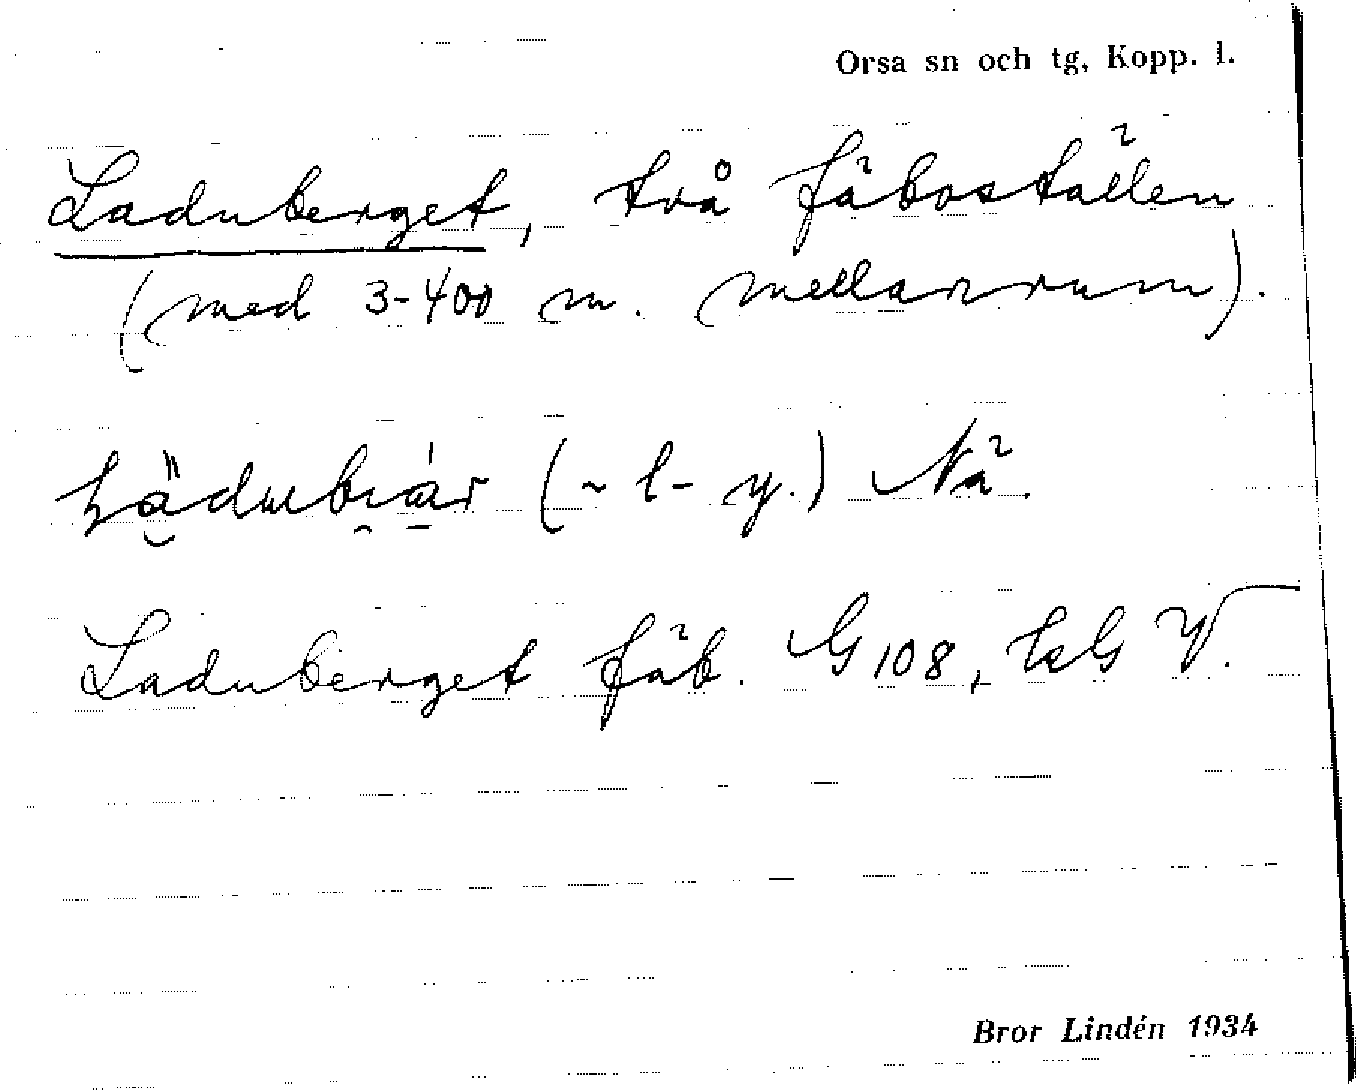 Orsa sn och tg, Kopp. l.
Laduberget, två fäboställen
(med 3-400 m. mellanrum).
(~ l- y.) Nä.
Laduberget fäb. G 108, V.
Bror Lindén 1934